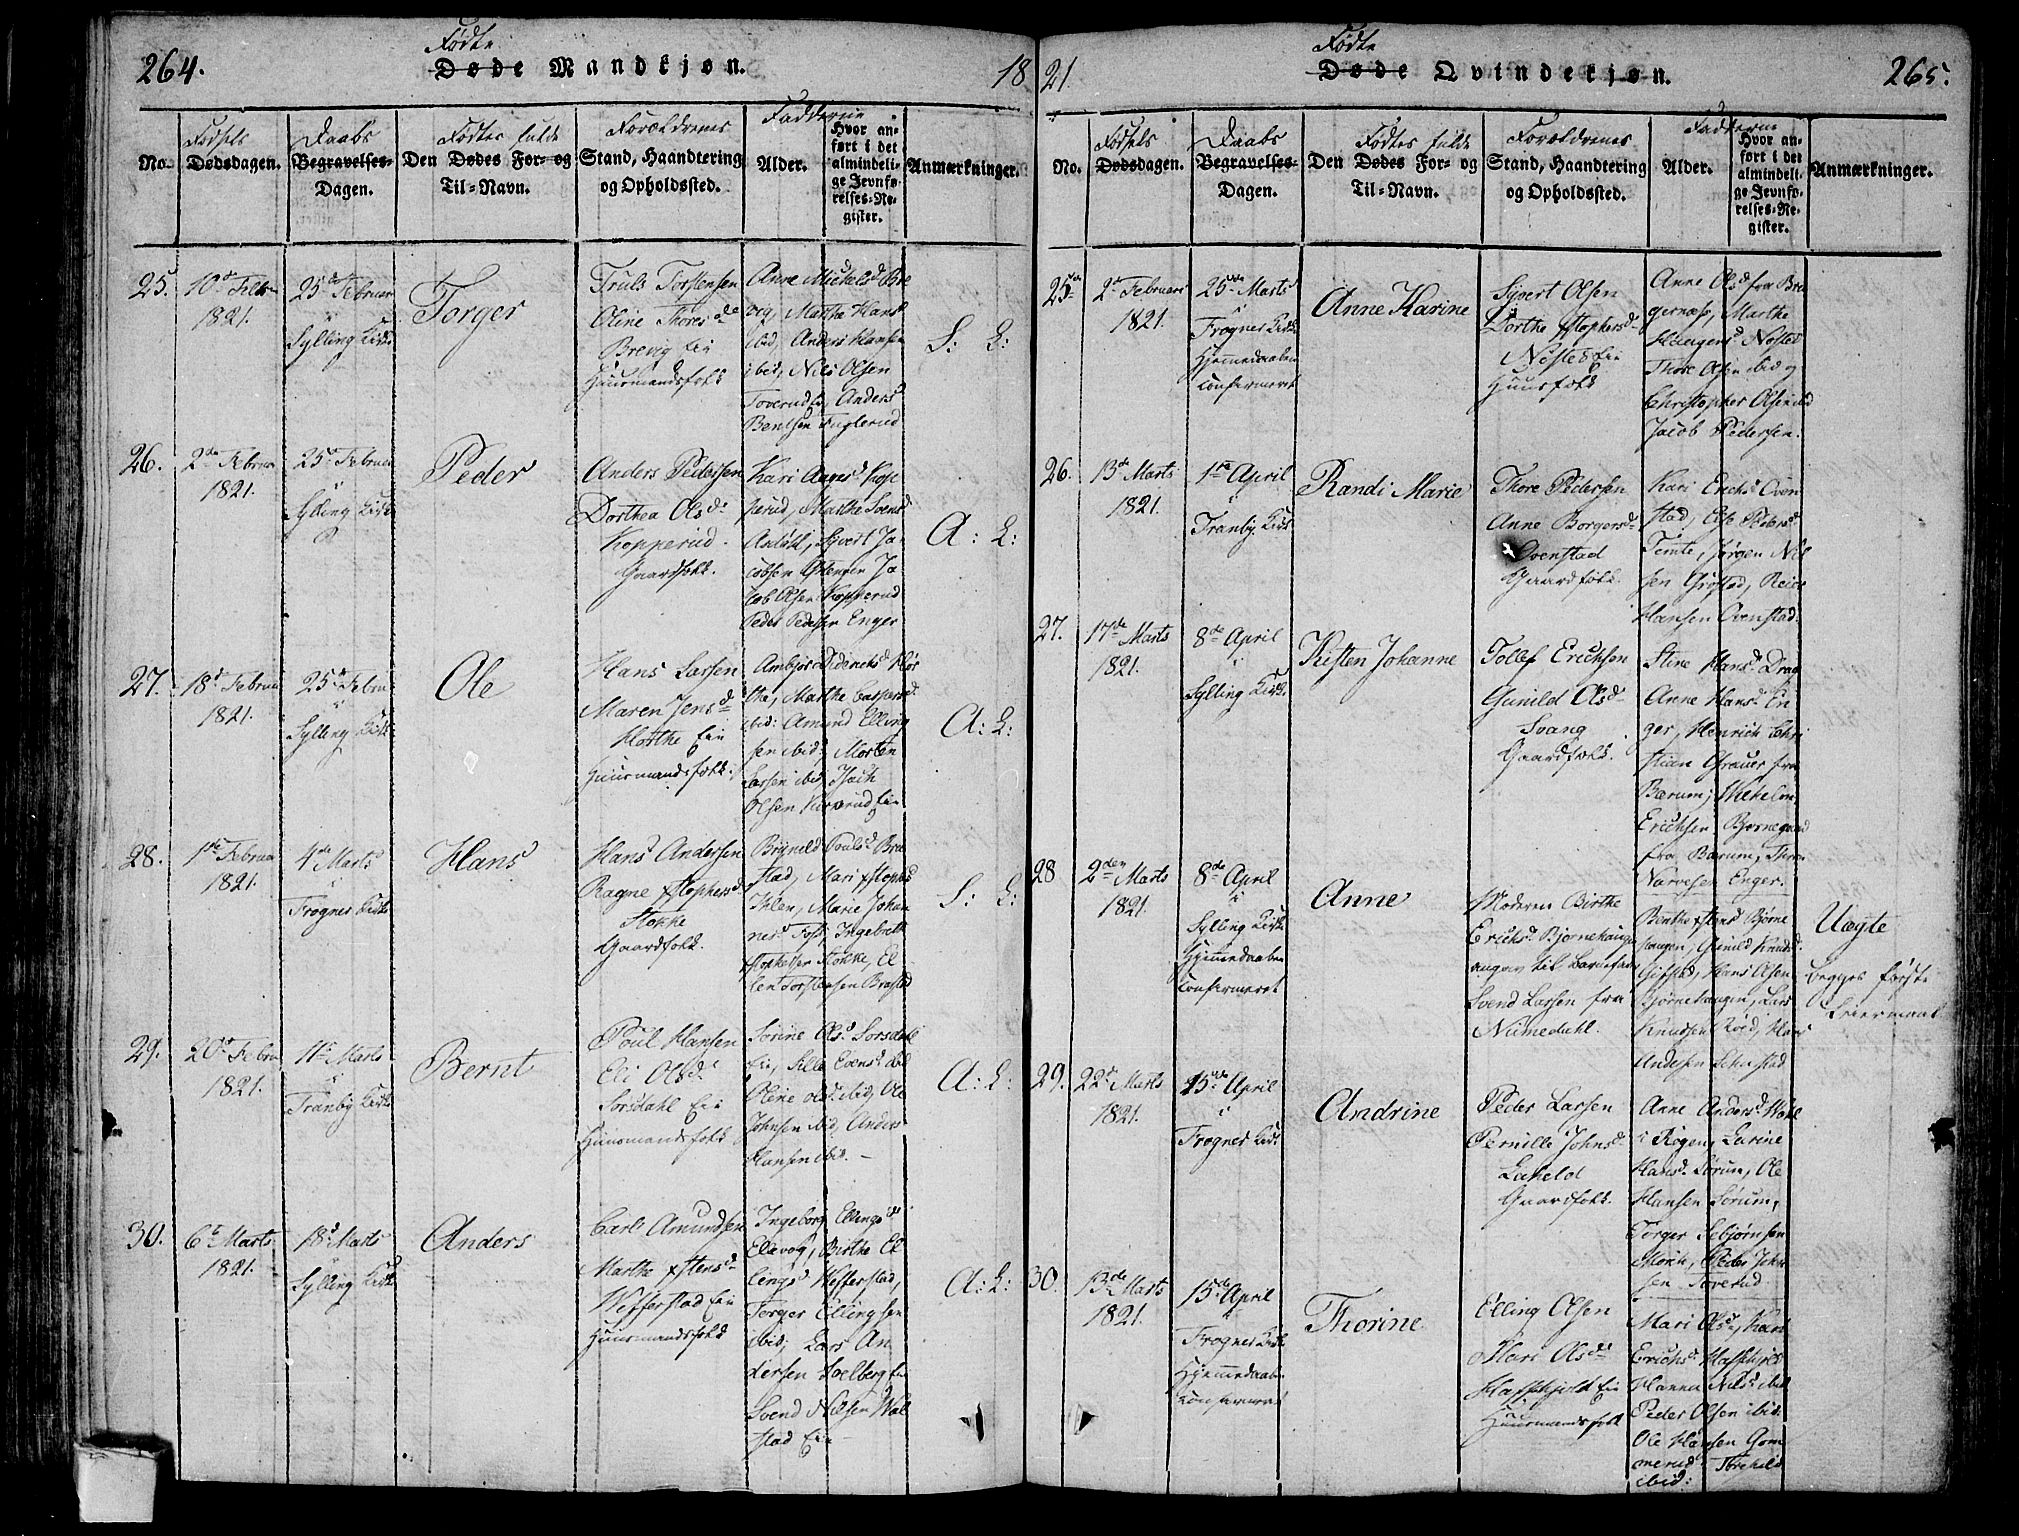 264.
Fødte
Døde Mandkjøn.
18
No.
Fødsels
Dødsdagen.
Daabs
Begravelses-
Dagen.
Fødtes fulde
Den Dødes For- og
Til-Navn.
Forældrenes
Stand, Haandtering
og Opholdssted.
Fadderne
Alder.
Hvor an-
ført i det
almindeli-
ge Jevnfø-
relses-Re-
gister.
Anmærkninger.
25.
10d Febr
1821.
25d Februar
Sylling Kirke
Torger
Truls Torstensen
Oline Thoresd
Brevig Eie
Huusmandsfolk
Anne Michelsd Bre
vig, Marthe Hansd
ibid, Anders Hansen
ibid, Nils Olsen
Toverud, Anders
Bentsen Fuglerud
S: L:
26.
2de Februar
1821.
25d Februar
Sylling Kirke
Peder
Anders Pedersen
Dorthea Olsd
Kopperud
Gaardfolk.
Kari Aagesd Kop
perud, Marthe Svensd
Sivert Ja-
cobsen Enger Ja
cob Olsen Kopperud
Peder Pedersen Enger
A: L:
27.
18d Februar
1821.
25d Februar
Sylling Kirke
Ole
Hans Larsen
Maren Jensd
Hørthe Eie
Huusmandsfolk.
Ambjør Diderichsd Hør
the, Marthe Caspersd
ibid: Amund Elling
sen ibid, Morten
Larsen ibid, Isach
Olsen Eie
A: L:
28.
1de Februar
1821.
4de Marts
Frogner Kirke
Hans
Hans Andersen
Ragne Xstophersd
Stokke
Gaardfolk.
Brynild Poulsd Bra
stad, Mari Xstophsd
Ihlen, Marie Johan
nesd Foss, Ingebreth
Stokke, El
len Torstensen Brastad
S: L:
29.
20d Febru
1821.
11te Marts
Tranby Kirke
Bernt
Poul Hansen
Eli Olsd
Sorsdahl Eie
Huusmandsfolk
Sørine Olsd Sorsdahl
Eie, Sille Evensd ibid
Oline olsd ibid, Ole
Johnsen ibid, Anders
Hansen ibid.
A: L:
30.
6te Marts
1821.
18d Marts
Sylling Kirke
Anders
Carl Amundsen
Marthe Xstensd
Wefferstad Eie
Huusmandsfolk
Ingeborg Ellingsd
Birthe El
lingsd Wefferstad,
Torger Ellingsen
ibid, Lars An
dersen Solberg Eie
Svend Nilsen Wal
stad Eie
A: L:
21.
Fødte
Døde Qvindekjøn.
265.
No.
Fødsels
Dødsdagen.
Daabs
Begravelses-
Dagen.
Fødtes fulde
Den Dødes For- og
Til-Navn.
Forældrenes
Stand, Haandtering
og Opholdssted.
Fadderne
Alder.
Hvor an-
ført i det
almindeli-
ge Jevnfø-
relses-Re-
gister.
Anmærkninger.
25
2d Februari
1821.
25de Marts
Frogner Kirke
Hjemmedaaben
confirmeret
Anne Karine
Syvert Olsen
Dorthe Xstophersd
Nøsted Eie
Huusfolk
Anne Olsd fra Bra
gernæs, Marthe
Haagensd Nøsted
Thore Olsen ibid og
Christopher Olsen ibid
Jacob Pedersen.
26.
13de Marts
1821.
1ste April
i
Tranby Kirke
Randi Marie
Thore Pedersen
Anne Borgersd
Ovenstad
Gaardfolk.
Kari Erichsd Oven
stad, Else Pedersd
Temte, Jørgen Nil
sen Grøstad, Reier
Hansen Ovenstad.
27.
17de Marts
1821.
8de April
i
Sylling Kirke.
Kisten Johanne
Tollef Erichsen
Gunild Olsd
Svang
Gaardfolk.
Stine Hansd Drag
Anne Hansd En
ger, Henrich Chri
stian Grauer fra
Bærum, Wilhelm
Erichsen Bjørnegaard
fra Bærum, Thor
Narvesen Enger.
28
2den Marts
1821.
8de April
i
Sylling Kirke
Hjemmedaaben
confirmeret
Anne
Moderen Birthe
Erichsd Bjørnehaugen
angav til Barnefader
Svend Larsen fra
Numedahl.
Birthe Xstensd Bjørne
haugen, Gunild Knudsd
Gifstad, Hans Olsen
Bjørnehaugen, Lars
Knudsen Røed, Hans
Andersen
Uægte
begges første
Leiermaal
29.
22d Marts
1821.
15de April
i
Frogner Kirke
Andrine
Peder Larsen
Pernille Johnsd
Laheld
Gaardfolk.
Anne Andersd
i Røgen, Larine
Hansd Sørum, Ole
Hansen Sørum,
Torger Sebjørnsen
Peder John
sen Toverud
30.
13de Marts
1821.
15de April
Frogner Kirke
Hjemmedaaben
confirmeret
Thorine
Elling Olsen
Mari Olsd
Eie
Huusmandsfolk
Mari Olsd, Kari
Erichsd
Hanna Nilsd ibid
Peder Olsen ibid.
Ole Hansen Gom
merud
ibid: